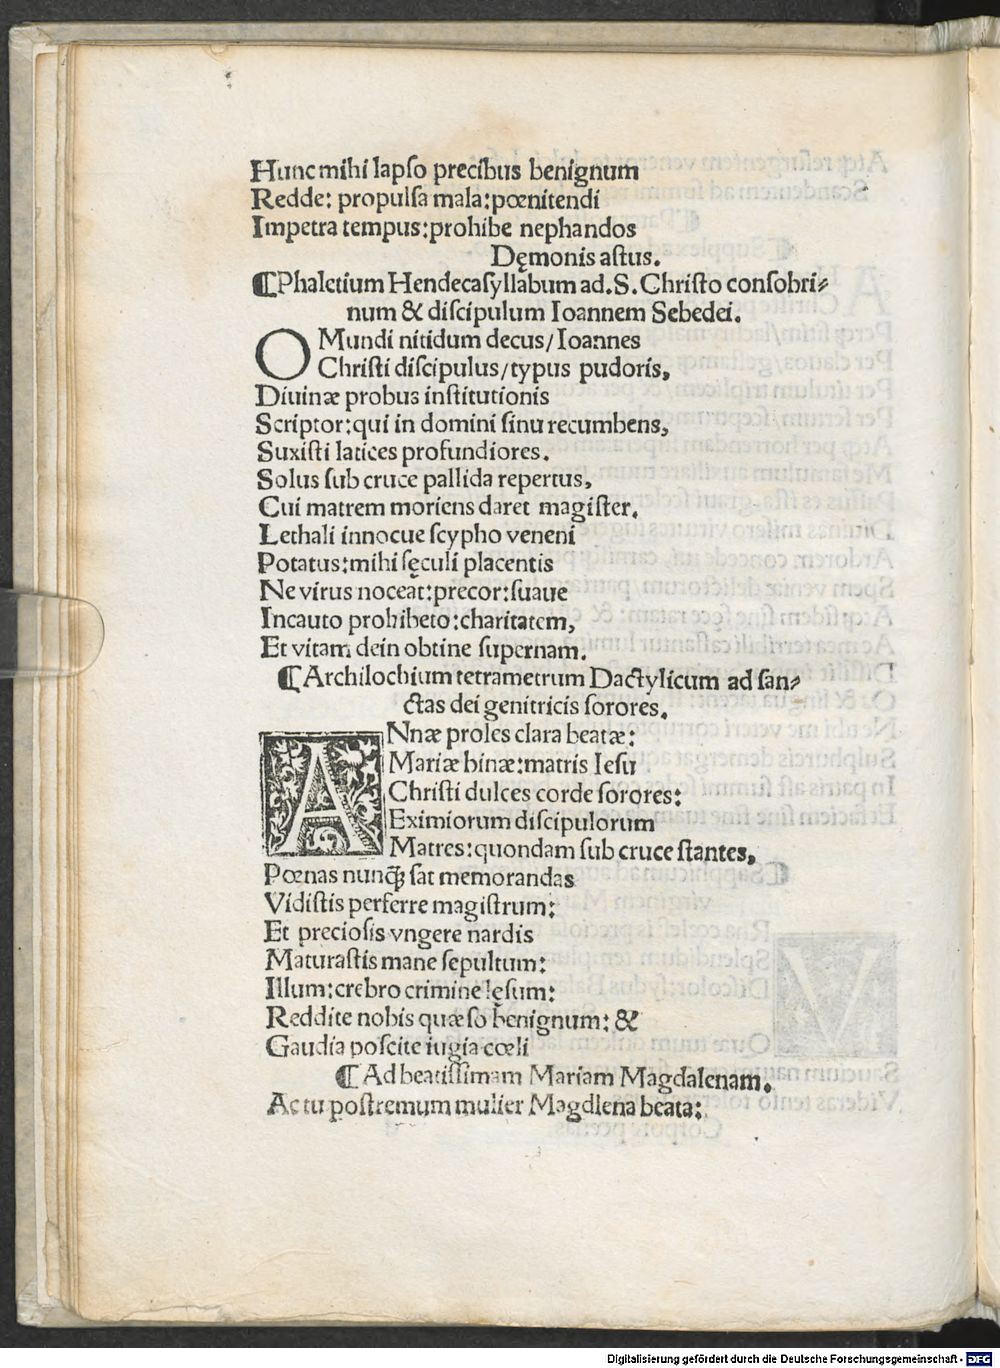 Hunc mihi lapſo precibus benignum
Redde: propulſa mala: pœnitendi
Impetra tempus: prohibe nephandos
Dęmonis aſtus.
⸿Phaletium Hendecaſyllabum ad. S. Chriſto conſobri⸗
num & diſcipulum Ioannem Sebedei.
O Mundi nitidum decus/ Ioannes
Chriſti diſcipulus/ typus pudoris,
Diuinæ probus inſtitutionis
Scriptor: qui in domini ſinu recumbens,
Suxiſti latices profundiores.
Solus ſub cruce pallida repertus,
Cui matrem moriens daret magiſter.
Lethali innocue ſcypho veneni
Potatus: mihi ſęculi placentis
Ne virus noceat: precor: ſuaue
Incauto prohibeto: charitatem,
Et vitam dein obtine ſupernam.
⸿Archilochium tetrametrum Dactylicum ad ſan⸗
ctas dei genitricis ſorores.
ANnæ proles clara beatæ:
Mariæ binæ: matris Ieſu
Chriſti dulces corde ſorores:
Eximiorum diſcipulorum
Matres: quondam ſub cruce ſtantes,
Pœnas nunꝗ̃ ſat memorandas
Vidiſtis perferre magiſtrum:
Et precioſis vngere nardis
Maturaſtis mane ſepultum:
Illum: crebro crimine lęſum:
Reddite nobis quæſo benignum: &
Gaudia poſcite iugia cœli
⸿Ad beatiſſimam Mariam Magdalenam.
Ac tu poſtremum mulier Magdlena beata:
Digitalisierung gefördert durch die Deutsche Forschungsgemeinschaft - DFG